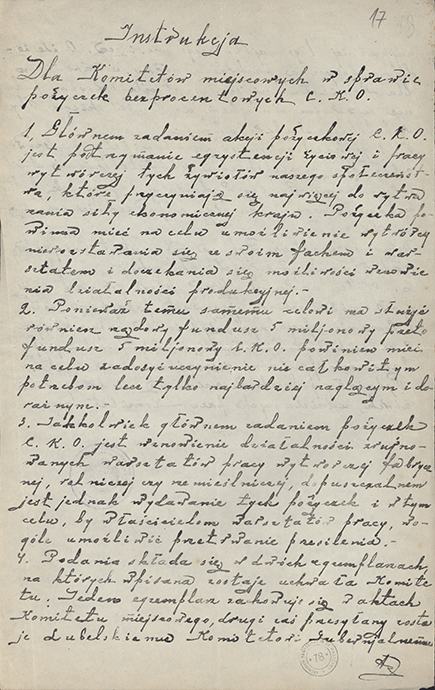 17
Instrukcja
Dla Komitetów miejscowych w sprawie
pożyczek bezprocentowych C. K. O.
1. Głównem zadaniem akcji pożyczkowej C. K. O.
jest podtrzymanie egzystencji życiowej i pracy
wytwórczej tych żywiołów naszego społeczeńst-
wa, które przyczyniają się najwięcej do wytwa
rzania siły ekonomicznej kraju. Pożyczka po-
winna mieć na celu umożliwienie wytwórcy
nierozstawania się ze swoim fachem i war-
sztatem i doczekania się możliwości wznowie
nia działalności produkcyjnej.-
2. Ponieważ temu samemu celowi ma służyć
również rządowy fundusz 5 miljonowy przeto
fundusz 5 miljonowy C. K. O. powinien mieć
na celu zadosyćuczynienie nie całkowitym
potrzebom lecz tylko najbardziej naglącym i do-
raźnym.-
3. Jakkolwiek głównem zadaniem pożyczek
C. K. O. jest wznowienie działalności zrujno-
wanych warsztatów pracy wytwórczej fabrycz
nej, rolniczej czy rzemieślniczej, dopuszczalnem
jest jednak wydawanie tych pożyczek i w tym
celu, by właścicielom warsztatów pracy, wo-
góle umożliwić przetrwanie przesilenia.-
4. Podania składa się w dwóch egzemplarzach,
na których wpisana zostaje uchwała Komite-
tu. Jeden egzemplarz zachowuje się w aktach
Komitetu miejscowego, drugi zaś przesyłany zosta
je Lubelskiemu Komitetowi Gubernjalnemu
78